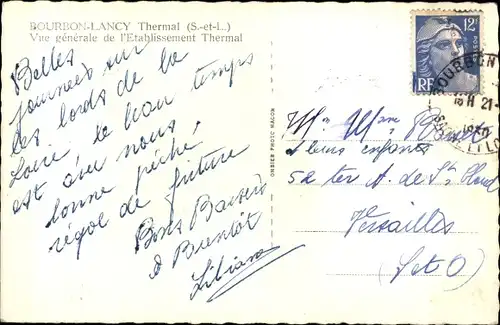 BOURBON-LANCY Thermal (S.-et-L..)
Vue générale de l'Etablissement Thermal
Belles
journées sur
les bords de la
Loire, le beau temps
est avec nous,
bonne pêche,
régal de friture
Bons Baisers
à Bientôt
Liliane
ONEIER PHOTO MACON
12F
POSTES
RF
BOURBON
18H 21-
1950
Mr Mme
& leurs enfants
52 ter A de St Cloud
Versailles
(S et O)